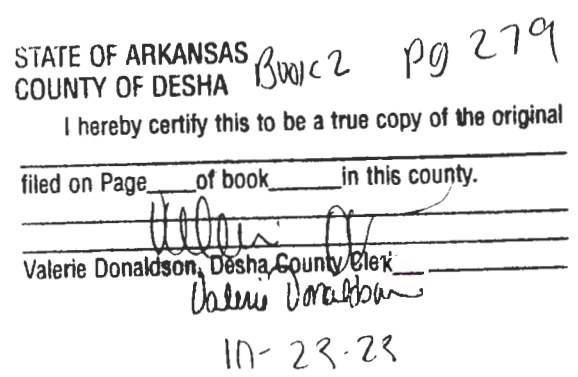 STATE OF ARKANSAS Book 2 pg 279
COUNTY OF DESHA
I hereby certify this to be a true copy of the original
filed on Page____of book______in this county.
Valerie Donaldson, Desha County Clerk
Valerie Donaldson
10-23-23